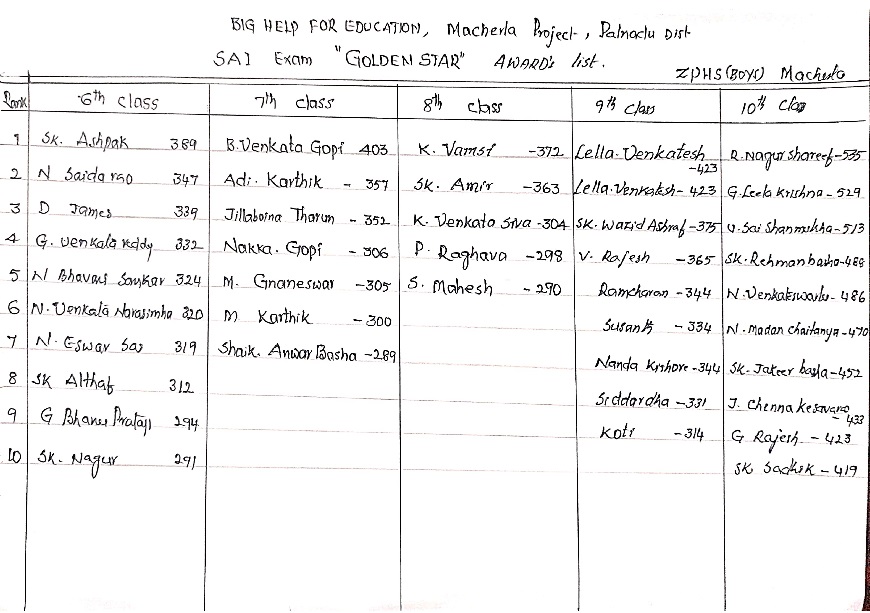 BIG HELP FOR EDUCATION, Macherla Project, Palnadu Dist
SA1 Exam "GOLDEN STAR" AWARD's list.
ZPHS(BOYS) Macherla
Rank 6th class 7th class 8th class 9th class 10th class
1 SK. Ashpak 389 B.Venkata Gopi 403 K. Vamsi -372 Lella.Venkatesh -423 R.Nagur Shareef-535
2 N Saidarao 347 Adi. Karthik - 357 SK. Amir -363 Lella.Venkatesh-423 G.Leela Krishna-529
3 D James 339 Jillaboina Tharun -352 K. Venkata Siva -304 SK. Wazid Ashraf-375 V.Sai Shanmukha-513
4 G. Venkata reddy 332 Nakka. Gopi -306 P. Raghava -298 V. Rajesh -365 SK.Rehman basha-488
5 N Bhavani Sankar 324 M. Gnaneswar -305 S. Mahesh -290 Ramcharan -344 N.Venkateswarlu-486
6 N.Venkata Narasimha 320 M Karthik -300 Susanth -334 N.madan chaitanya-470
7 N. Eswar Sai 319 Shaik. Anwar Basha -289 Nanda Kishore-344 SK.Jakeer basha-452
8 SK Althaf 312 Siddardha -331 J. Chenna Kesavarao -433
9 G Bhanu Pratap 294 Koti -314 G Rajesh -423
10 SK. Nagur 291 SK Sadhik -419